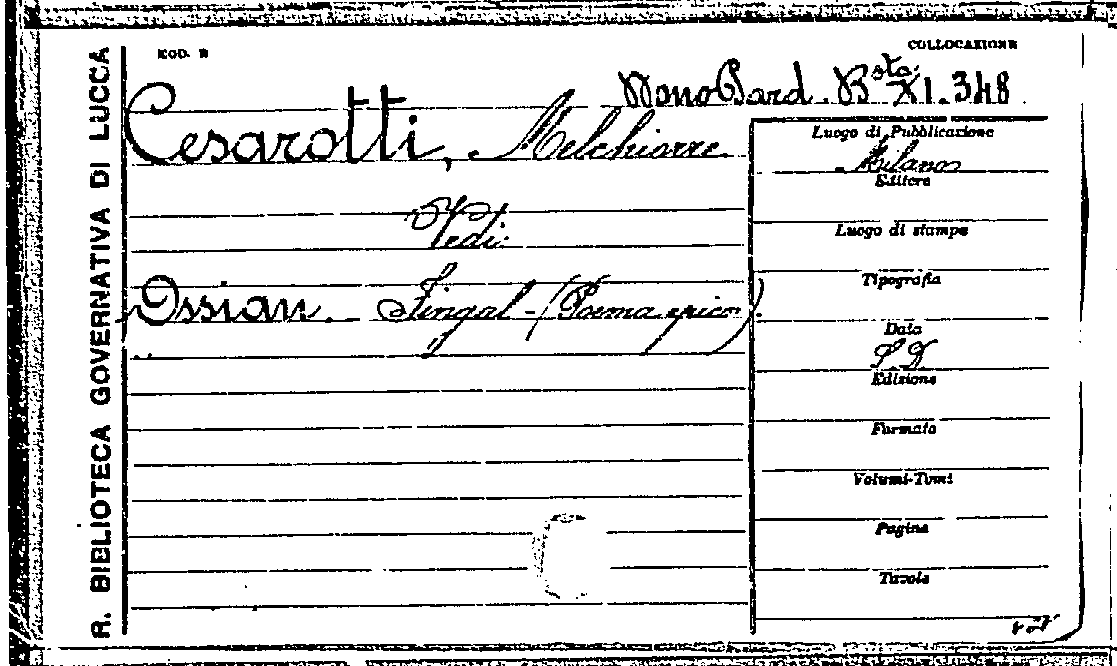 R. BIBLIOTECA GOVERNATIVA DI LUCCA
MOD. B
COLLOCAZIONE
Bsta: XI. 348
Cesarotti, Melchiorre
Vedi:
Ossian. - Fingal - (Poema epico).
Luogo di Pubblicazione
Milano
Editore
Luogo di stampa
Tipografia
Data
S. D
Edizione
Formato
Volumi-Tomi
Pagine
Tavole